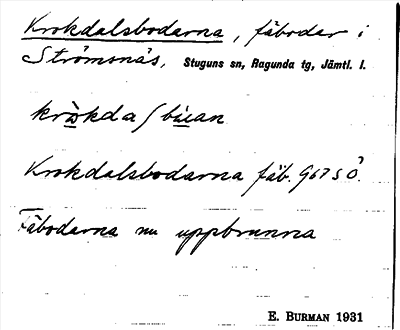 Krokdalsbodarna, fäbodar i
Strömsnäs, Stuguns sn, Ragunda tg, Jämtl. l.
Krokdalsbodarna fäb. 967 S Ö.
Fäbodarna nu uppbrunna
E. BURMAN 1931